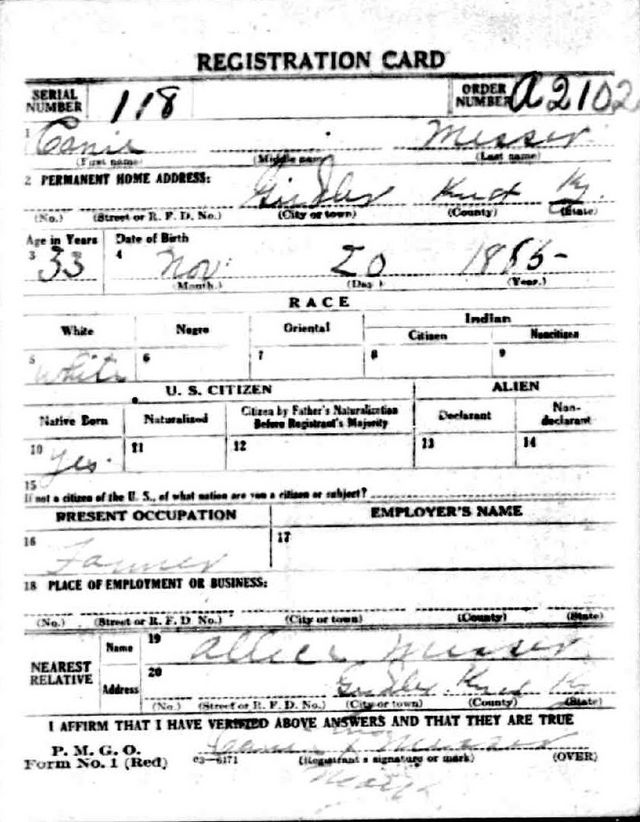 REGISTRATION CARD
SERIAL NUMBER 118 ORDER NUMBER A2102
1 Canie Messer
(First name) (Middle name) (Last name)
2 PERMANENT HOME ADDRESS:
Girdler Knox Ky.
(No.) (Street or R. F. D. No.) (City or town) (County) (State)
Age in Years Date of Birth
3 33 4 Nov. 20 1885
(Month.) (Day.) (Year.)
RACE
White Negro Oriental Indian
Citizen Noncitizen
5 White 6 7 8 9
U. S. CITIZEN ALIEN
Native Born Naturalized Citizen by Father's Naturalization Before Registrant's Majority Declarant Non-declarant
10 Yes. 11 12 13 14
15
If not a citizen of the U. S., of what nation are you a citizen or subject?
PRESENT OCCUPATION EMPLOYER'S NAME
16 Farmer 17
18 PLACE OF EMPLOYMENT OR BUSINESS:
(No.) (Street or R. F. D. No.) (City or town) (County) (State)
NEAREST RELATIVE Name 19 Messer
Address 20 Girdler Knox Ky
(No.) (Street or R. F. D. No.) (City or town) (County) (State)
I AFFIRM THAT I HAVE VERIFIED ABOVE ANSWERS AND THAT THEY ARE TRUE
P. M. G. O.
Form No. 1 (Red) 03—6171 Canie Messer
(Registrant's signature or mark) (OVER)
Mark